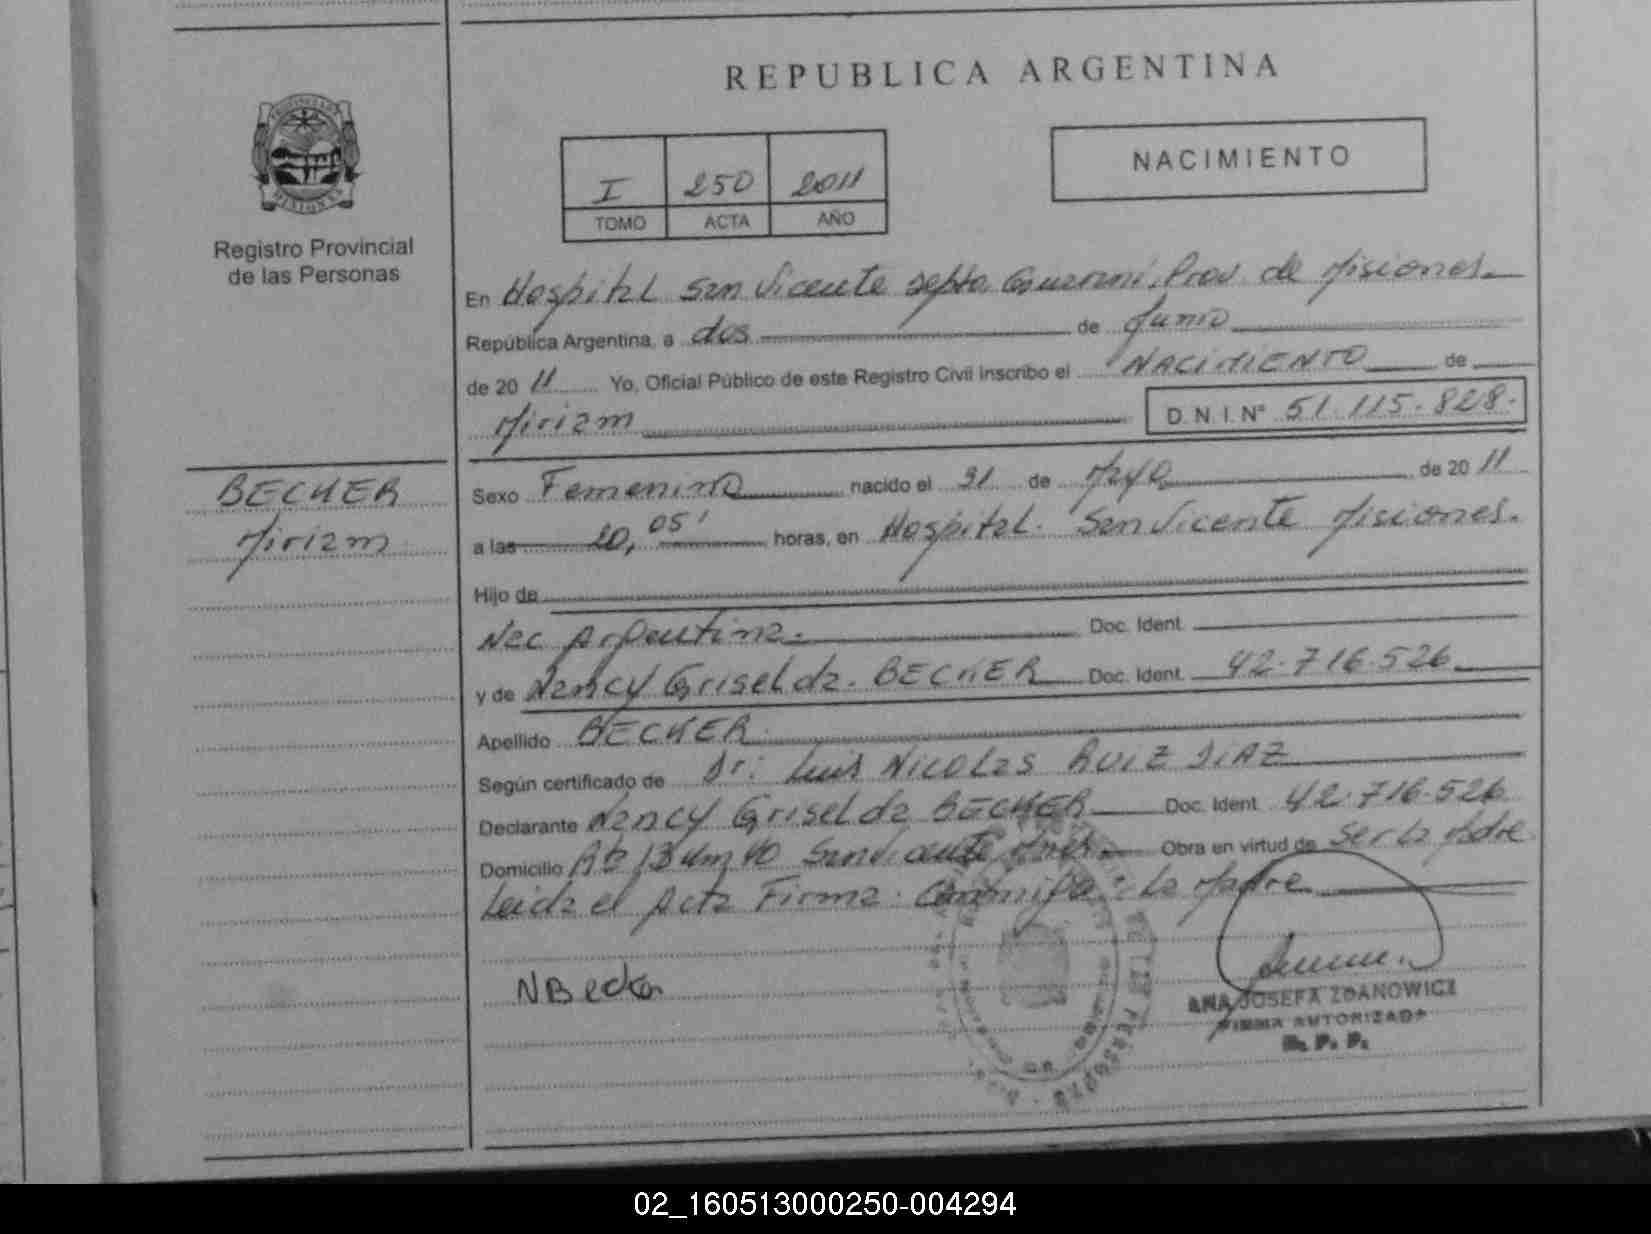 REPUBLICA ARGENTINA
NACIMIENTO
I 250 2011
TOMO ACTA AÑO
Registro Provincial
de las Personas
En Hospital San Vicente Depto Guarani, Prov. de Misiones.
República Argentina, a dos de Junio
de 2011 Yo, Oficial Público de este Registro Civil inscribo el NACIMIENTO de
Miriam D.N.I. N° 51.115.828.
BECKER
Miriam
Sexo Femenino nacido el 31 de Mayo de 2011
a las 20,05' horas, en Hospital San Vicente Misiones.
Hijo de
Nac Argentina. Doc. Ident.
y de Nancy Griselda. BECKER Doc. Ident. 42.716.526
Apellido BECKER
Según certificado de Dr: Luis Nicolas RUIZ DIAZ
Declarante Nancy Griselda BECKER Doc. Ident 42.716.526
Domicilio San Vicente Mnes. Obra en virtud de Ser La Madre
Leida el Acta Firma Conmigo: La Madre
NBecker
ANA JOSEFA ZDANOWICZ
FIRMA AUTORIZADA
R. P. P.
02_160513000250-004294